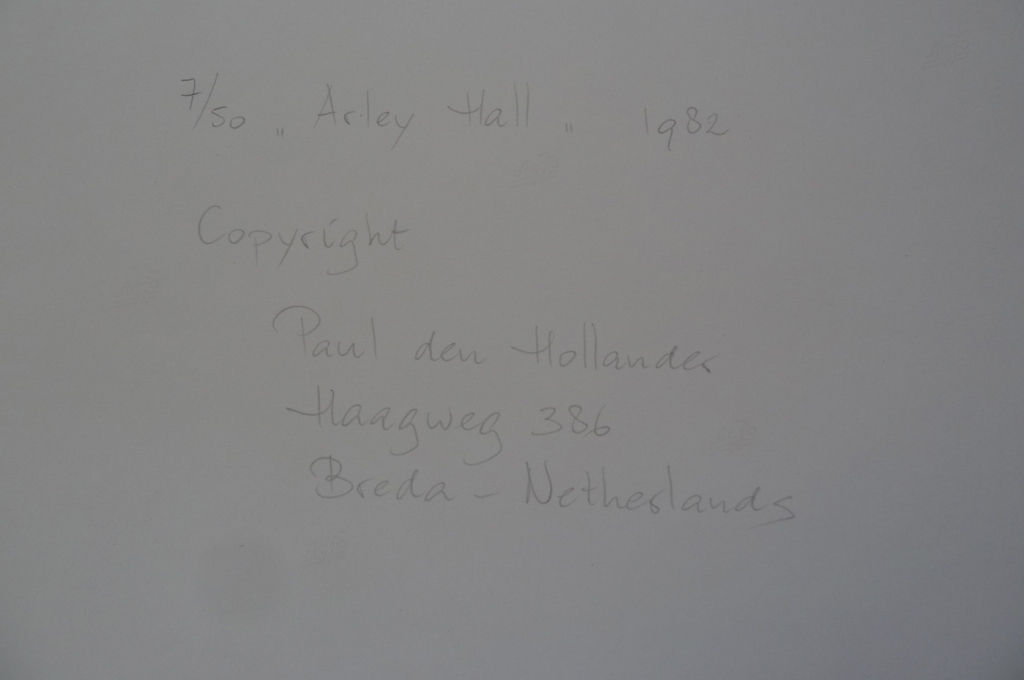 7/50 „ Arley Hall „ 1982
Copyright
Paul den Hollander
Haagweg 386
Breda - Netherlands